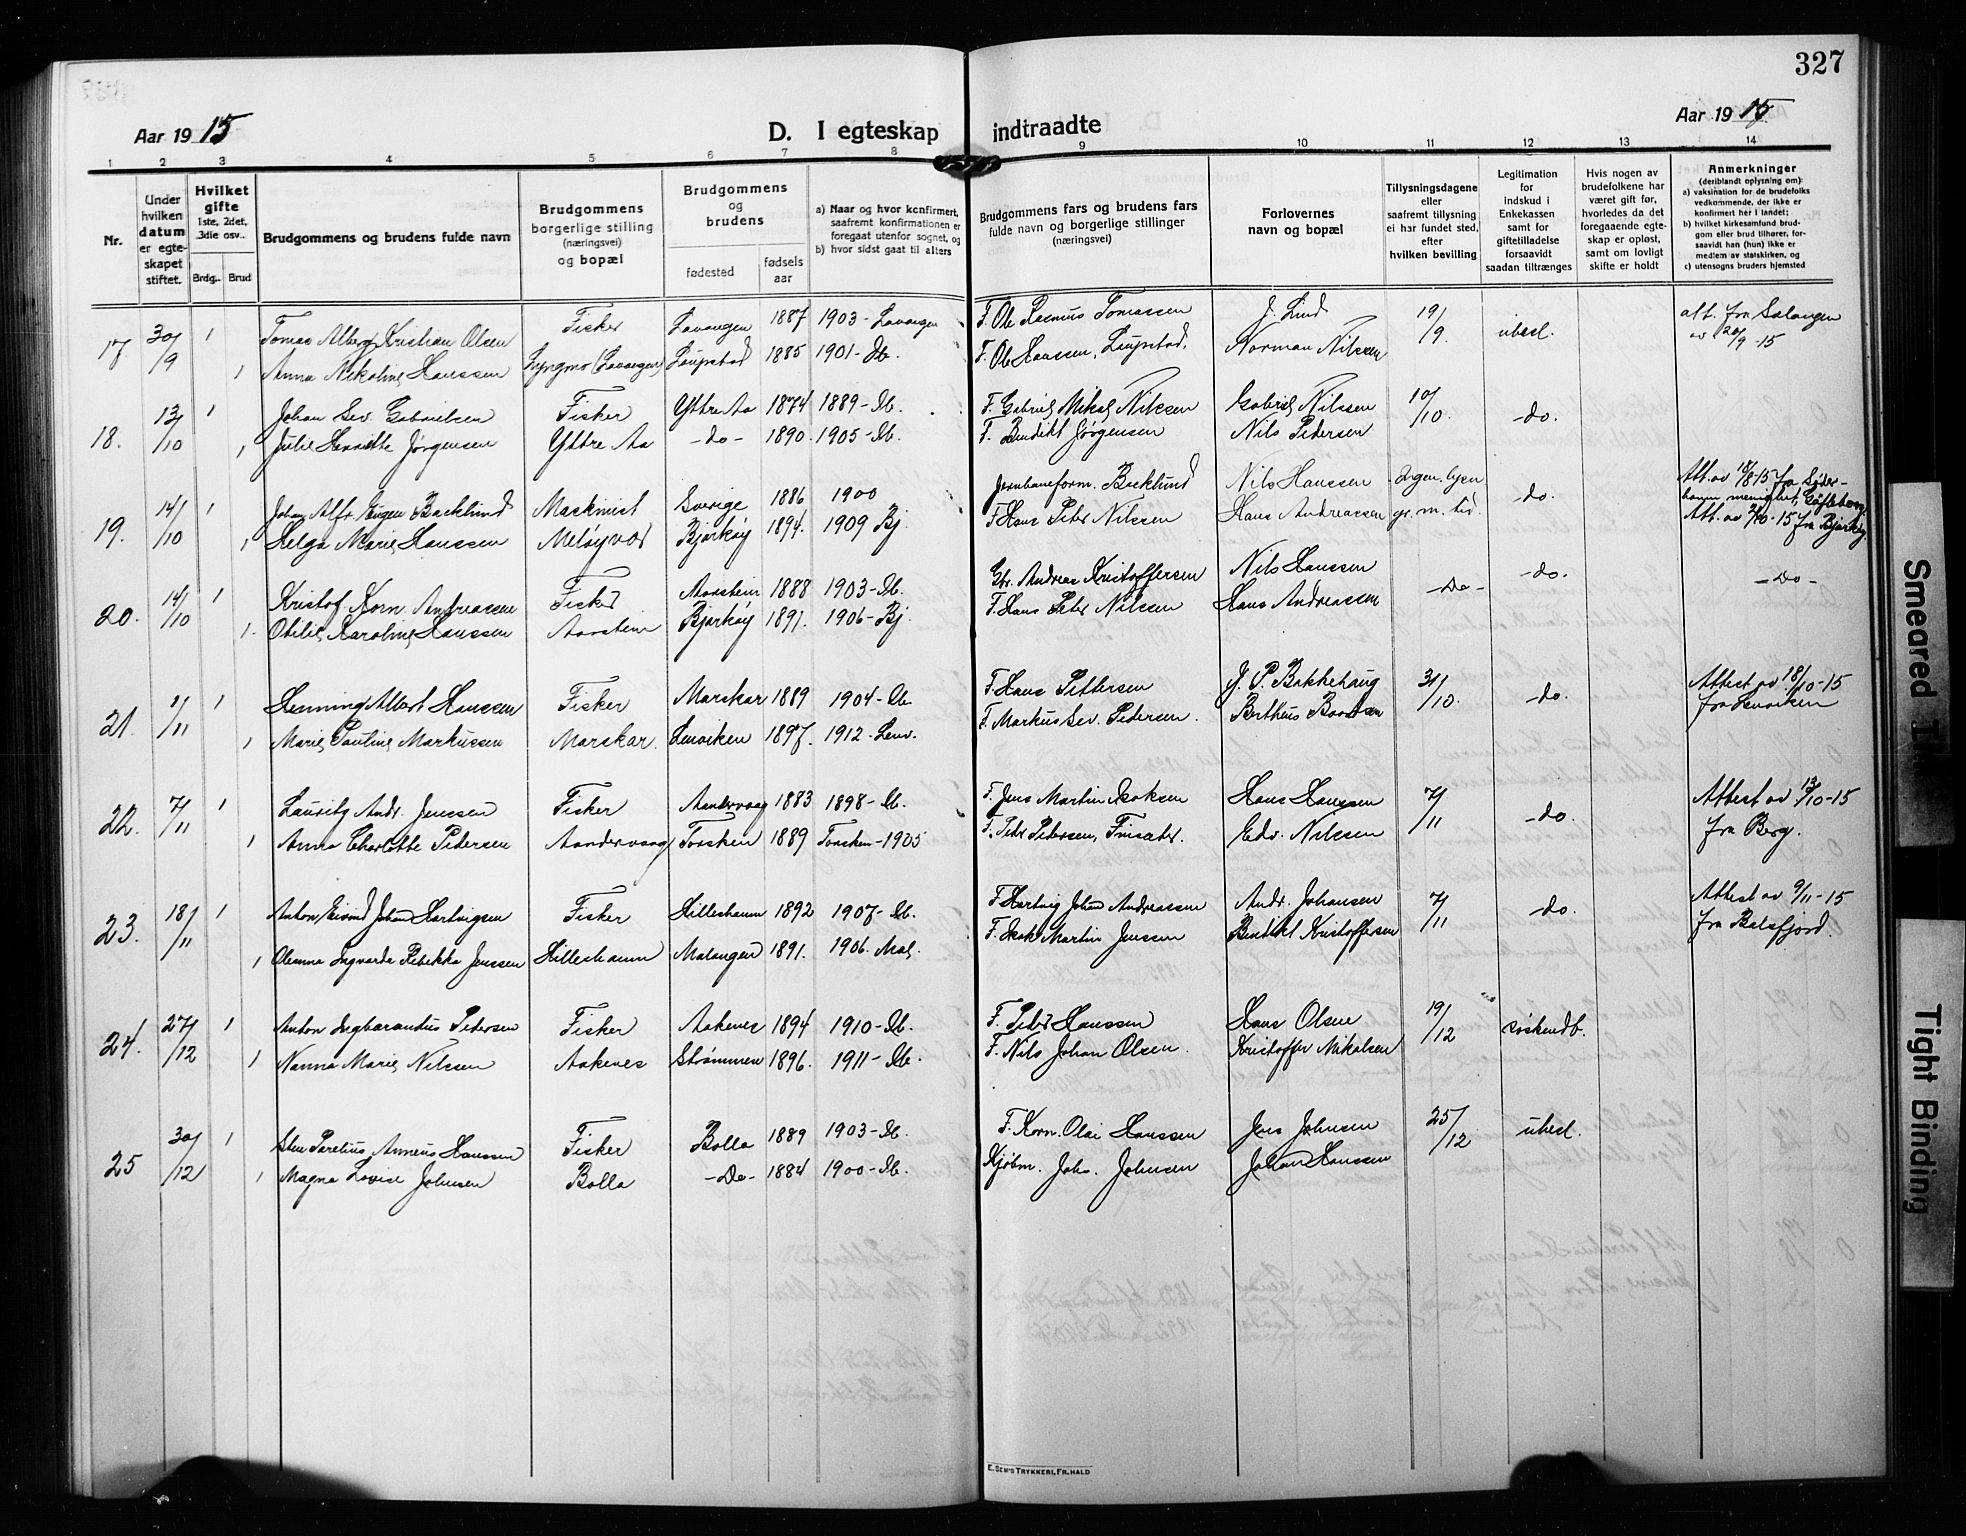 327
Aar 1915
D. I egteskap indtraadte
Aar 1915
1 2 3 4 5 6 7 8 9 10 11 12 13 14
Nr.
Under hvilken datum er egteskapet stiftet.
Hvilket gifte 1ste, 2det, 3die osv..
Brdg. Brud
Brudgommens og brudens fulde navn
Brudgommens borgerlige stilling (næringsvei) og bopæl
Brudgommens og brudens
fødested
fødsels aar
a) Naar og hvor konfirmert, saafremt konfirmationen er foregaat utenfor sognet, og
b) hvor sidst gaat til alters
Brudgommens fars og brudens fars fulde navn og borgerlige stillinger (næringsvei)
Forlovernes navn og bopæl
Tillysningsdagene eller saafremt tillysning ei har fundet sted, efter hvilken bevilling
Legitimation for indskud i Enkekassen samt for giftetilladelse forsaavidt saadan tiltrænges
Hvis nogen av brudefolkene har været gift før, hvorledes da det foregaaende egteskap er opløst, samt om lovligt skifte er holdt
Anmerkninger (deriblandt oplysning om):
a) vaksination for de brudefolks vedkommende, der ikke er konfirmert her i landet;
b) hvilket kirkesamfund brudgom eller brud tilhører, forsaavidt han (hun) ikke er medlem av statskirken, og
c) utensogns bruders hjemsted
17 30/9 1 Tomas Alberg Kristian Olsen Fisker Lavangen 1887 1903 - Lavangen F. Ole Rasmus Tomassen J. Lind 19/9 ubesl. att. fra Salangen
1 Anna Nikoline Hanssen Lyngmo (Lavangen) Laupstad 1885 1901 - Ib. F. Ole Hanssen, Laupstad. Norman Nilssen av 20/9 -15
18. 13/10 1 Johan Sev. Gabrielsen Fisker Yttre Aa 1874 1889 - Ib. F. Gabriel Mikal Nilssen Gabriel Nilssen 10/10 - do.
1 Julie Henrette Jørgensen Yttre Aa - do - 1890 1905 - Ib. F. Bendikt Jørgensen Nils Pedersen
19. 14/10 1 Johan Alfr. Eugen Backlund Maskinist Sverige 1886 1900 Jernbaneform. Backlund Nils Hanssen - do. Att. av 18/8-15 fra Søder-
hamn menighet, Gefleborg.
1 Helga Marie Hanssen Meløyvær Bjarkøy 1894. 1909 Bj. F. Hans Peter Nilssen Hans Andreassen gr. m. tid. Att. av 2/10 -15 fra Bjarkøy.
20. 14/10 1 Kristof. Korn. Andreassen Fisker Aarstein 1888 1903 - Ib. Gbr. Andreas Kristoffersen Nils Hanssen - Do - - do. - Do -
1. Otelie Karoline Hanssen Aarstein Bjarkøy 1891. 1906 - Bj. F. Hans Peter Nilssen Hans Andreassen
21. 1/11 1 Henning Albert Hanssen Fisker Marskar 1889 1904 - Ib. F. Hans Pettersen J. P. Bakkehaug 31/10. do. Attest av 18/10-15
1 Marie Pauline Markussen Marskar. Lenviken 1897. 1912 - Lenv. F. Markus Sev. Pedersen. Berthus fra Lenviken
22. 7/11 1 Lauritz Andr. Jenssen Fisker Aandervaag 1883 1898 - Ib. F. Jens Martin Isaksen Hans Hanssen 7/11 - do. Attest av 13/10-15
1 Anna Charlotte Pedersen Aandervaag Torsken 1889 Torsken - 1905 F. Peter Petersen, Finsæter. Edv. Nilssen fra Berg.
23. 18/11 1 Anton Eivind Johan Hartvigsen Fisker Hilleshamn 1892 1907 - Ib. F. Hartvig Johan Andreassen Andr. Johansen 7/11 - do. Attest av 9/11 - 15
1 Oleanna Ingvarda Rebekka Jenssen Hilleshamn Malangen 1891. 1906. Mal. F. Isak Martin Jenssen Bendikt Kristoffersen fra Balsfjord.
24. 27/12 1 Anton Ingbarandus Pedersen Fisker Aakenes 1894 1910 - Ib. F. Peder Hanssen Hans Olsen 19/12 søskendb.
1 Nanna Marie Nilssen Aakenes Strømmen 1896. 1911 - Ib. F. Nils Johan Olsen. Kristoffer Mikalsen
25 30/12 1 Parelius Anneus Hanssen Fisker Bolla 1889 1903 - Ib. F. Korn. Olai Hanssen Jens Johnsen 25/12 ubesl.
1 Magna Lovise Johnsen Bolla - Do - 1884 1900 - Ib. Kjøbm. Johs. Johnsen Johan Hanssen
E. SEM'S TRYKKERI, FR.HALD
Smeared Ink
Tight Binding